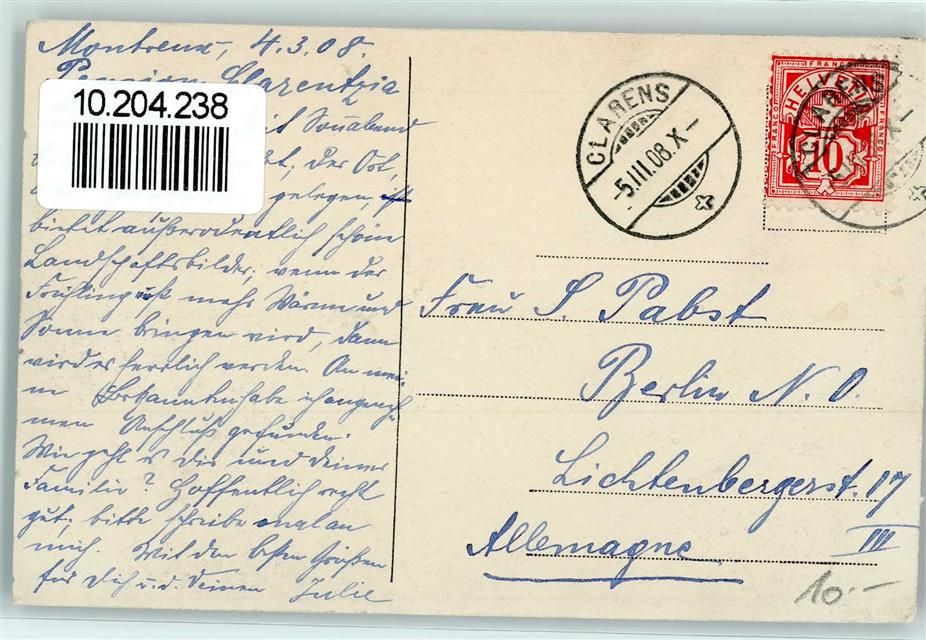 Montreux, 4.3.08.
Pension Clarentzia
10.204.238
Sonabend
der Ort,
gelegen ist
bietet außerordentlich schöne
Landschaftsbilder; wenn der
Frühling uns mehr Wärme und
Sonne bringen wird, dann
wird es herrlich werden. An mei-
ne Bekannten habe ich angeneh-
men Anschluß gefunden.
Wie geht es dir und deiner
Familie? Hoffentlich recht
gut; bitte schreibe mal an
mich. Mit den besten Grüßen
für Dich u. d. Deinen Julie
CLARENS
-5.III.08.X-
FRANCO
HELVETIA
10
Frau S. Pabst
Berlin N. O.
Lichtenbergerst. 17
III
Allemagne
10.-